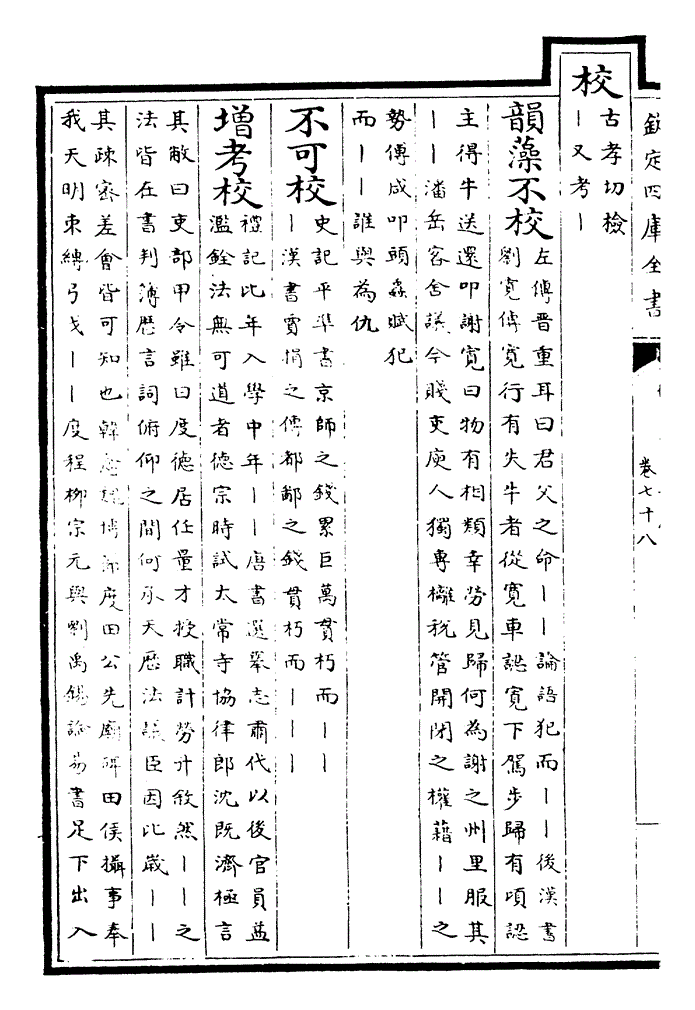 欽定四庫全書
卷七十八
校
古孝切檢
丨又考丨
韻藻不校
左傳晉重耳曰君父之命丨丨論語犯而丨丨後漢書
劉寬傳寬行有失牛者從寬車認寬下駕步歸有頃認
主得牛送還叩謝寬曰物有相類幸勞見歸何為謝之州里服其
丨丨潘岳客舍議今賤吏庾人獨專欐税管開閉之權藉丨丨之
勢傅咸叩頭蟲賦犯
而丨丨誰與為仇
不可校
史記平準書京師之錢累巨萬貫朽而丨丨
丨漢書賈捐之傳都鄙之錢貫朽而丨丨丨
增考校
禮記比年入學中年丨丨唐書選舉志肅代以後官員益
濫銓法無可道者德宗時試太常寺協律郎沈既濟極言
其敝曰吏部甲令雖曰度德居任量才授職計勞升敘然丨丨之
法皆在書判簿歷言詞俯仰之間何承天歷法議臣因比歲丨丨
其疎密差會皆可知也韓愈魏博節度田公先廟碑田侯攝事奉
我天明束縛弓戈丨丨度程柳宗元與劉禹錫論易書足下出入